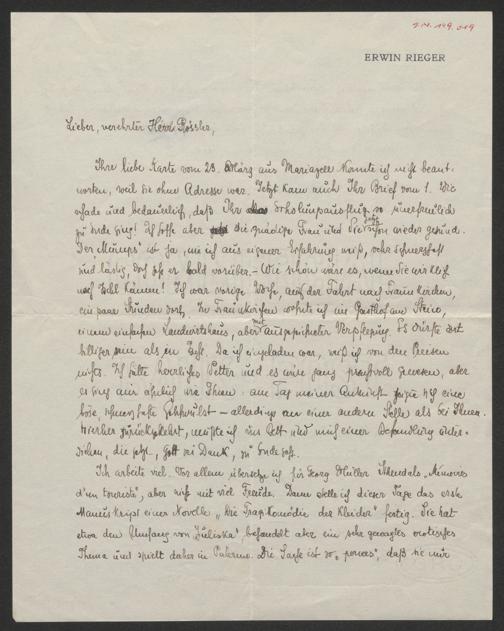 I.N. 199.019
ERWIN RIEGER
Lieber, verehrter Herr Rössler,
Ihre liebe Karte vom 23. März aus Mariazell konnte ich nicht beant-
worten, weil sie ohne Adresse war. Jetzt kam auch Ihr Brief vom 1. Wie
schade und bedauerlich, daß Ihr Erholungsausflug so unerfreulich
zu Ende ging! Ich hoffe aber die gnädige Frau und Sie sind schon wieder gesund.
Der Mumps ist ja, wie ich aus eigener Erfahrung weiß, sehr schmerzhaft
und lästig, doch geht er bald vorüber. – Wie schön wäre es, wenn Sie wirklich
nach Ischl kämen! Ich war vorige Woche, auf der Fahrt nach Traunkirchen,
ein paar Stunden dort. In Traunkirchen wohnte ich im Gasthof am Stein,
einem einfachen Landwirtshaus, aber mit ausgezeichneter Verpflegung. Es dürfte dort
billiger sein als in Ischl. Da ich eingeladen war, weiß ich von den Preisen
nichts. Ich hatte herrliches Wetter und es wäre ganz prachtvoll gewesen, aber
es ging mir ähnlich wie Ihnen: am Tag meiner Ankunft zeigte sich eine
böse, schmerzhafte Geschwulst – allerdings an einer andern Stelle als bei Ihnen.
Hierher zurückgekehrt, mußte ich ins Bett und mich einer Behandlung unter-
ziehen, die jetzt, Gott sei Dank, zu Ende geht.
Ich arbeite viel. Vor allem übersetze ich für Georg Müller Stendals „Mémoires
d'un touriste", aber nicht mit viel Freude. Dann stelle ich dieser Tage das erste
Manuskript einer Novelle „Die Tragikomödie der Kleider" fertig. Sie hat
etwa den Umfang von „Juliska", behandelt aber ein sehr gewagtes erotisches
Thema und spielt daher in Palermo. Die Sache ist so „pervers", daß sie nur